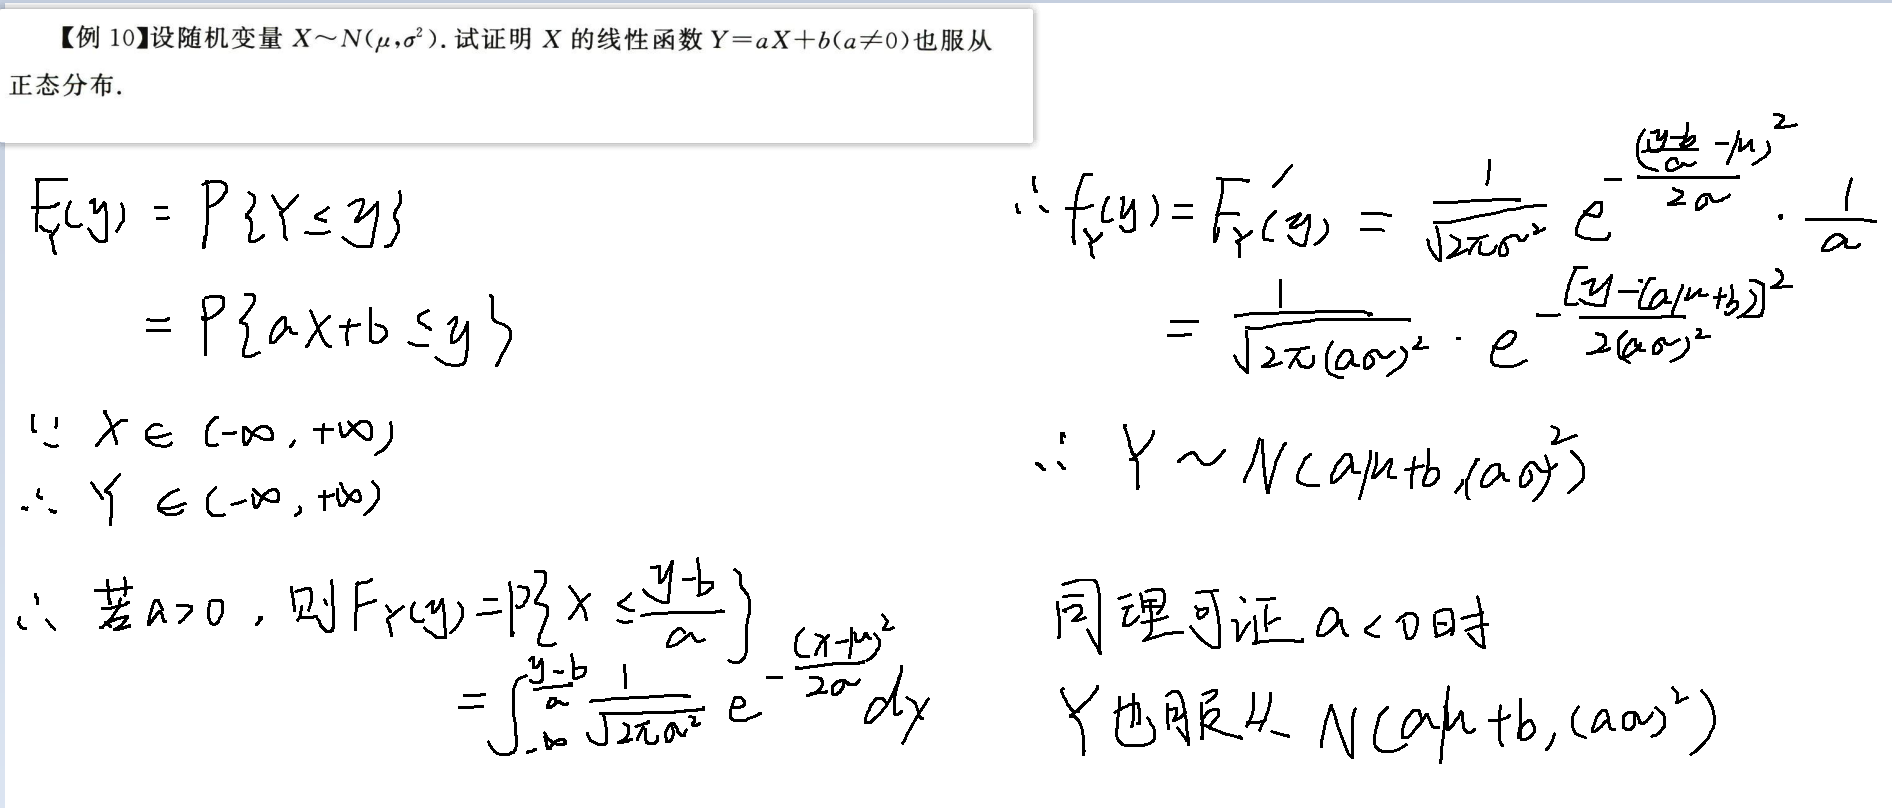 【例 10】设随机变量 X~N(μ,σ²). 试证明 X 的线性函数 Y=aX+b(a≠0)也服从
正态分布.
F_Y(y) = P{Y≤y}
= P{aX+b≤y}
∵ X∈(-∞, +∞)
∴ Y∈(-∞, +∞)
∴ 若a>0, 则F_Y(y)=P{X≤\frac{y-b}{a}}
= ∫_{-∞}^{\frac{y-b}{a}} \frac{1}{\sqrt{2πσ²}} e^{-\frac{(x-μ)²}{2σ}} dx
∴ f_Y(y) = F_Y'(y) = \frac{1}{\sqrt{2πσ²}} e^{-\frac{(\frac{y-b}{a}-μ)²}{2σ}} · \frac{1}{a}
= \frac{1}{\sqrt{2π(aσ)²}} · e^{-\frac{[y-(aμ+b)]²}{2(aσ)²}}
∴ Y ~ N(aμ+b, (aσ)²)
同理可证 a<0时
Y也服从 N(aμ+b, (aσ)²)